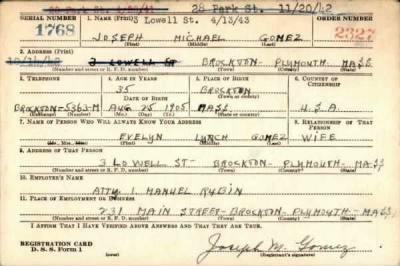 28 Park St. 11/20/42
SERIAL NUMBER
1. NAME (Print)
3 Lowell St. 4/13/43
ORDER NUMBER
1768
JOSEPH MICHAEL GOMEZ
2327
(First) (Middle) (Last)
2. ADDRESS (Print)
3 LOWELL ST BROCKTON - PLYMOUTH - MASS
(Number and street or R. F. D. number) (Town) (County) (State)
3. TELEPHONE
4. AGE IN YEARS
5. PLACE OF BIRTH
6. COUNTRY OF CITIZENSHIP
35
BROCKTON
DATE OF BIRTH
(Town or county)
BROCKTON-5363-M AUG 25 1905 MASS U.S.A.
(Exchange) (Number) (Mo.) (Day) (Yr.) (State or country)
7. NAME OF PERSON WHO WILL ALWAYS KNOW YOUR ADDRESS
8. RELATIONSHIP OF THAT PERSON
EVELYN LYNCH GOMEZ WIFE
(Mr., Mrs., Miss) (First) (Middle) (Last)
9. ADDRESS OF THAT PERSON
3 LOWELL ST - BROCKTON - PLYMOUTH - MASS
(Number and street or R. F. D. number) (Town) (County) (State)
10. EMPLOYER'S NAME
ATTY I. MANUEL RUBIN
11. PLACE OF EMPLOYMENT OR BUSINESS
231 MAIN STREET - BROCKTON - PLYMOUTH - MASS
(Number and street or R. F. D. number) (Town) (County) (State)
I AFFIRM THAT I HAVE VERIFIED ABOVE ANSWERS AND THAT THEY ARE TRUE.
REGISTRATION CARD
D. S. S. Form 1
Joseph M. Gomez
(Registrant's signature)